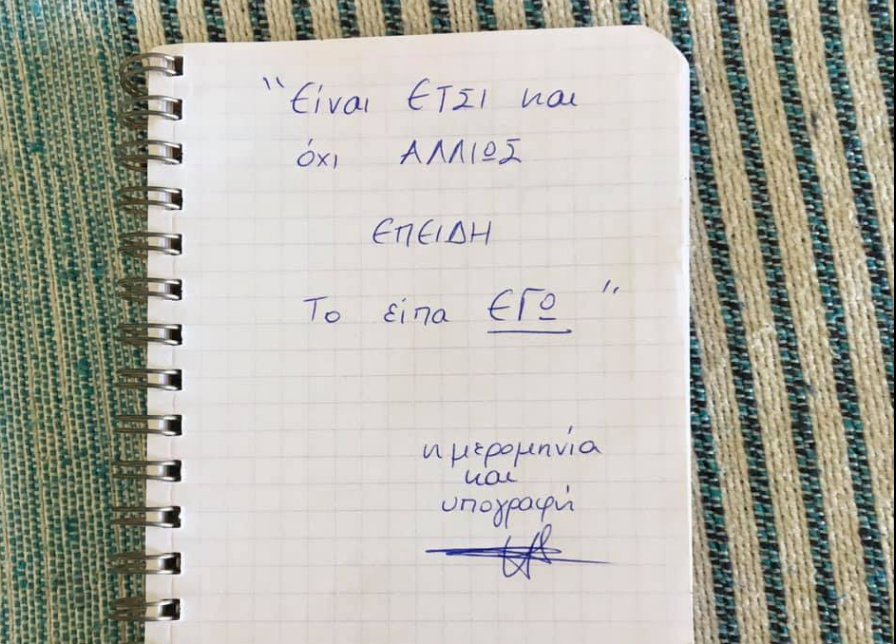 "Είναι ΕΤΣΙ και
όχι ΑΛΛΙΩΣ
ΕΠΕΙΔΗ
Το είπα ΕΓΩ"
ημερομηνία
και
υπογραφή